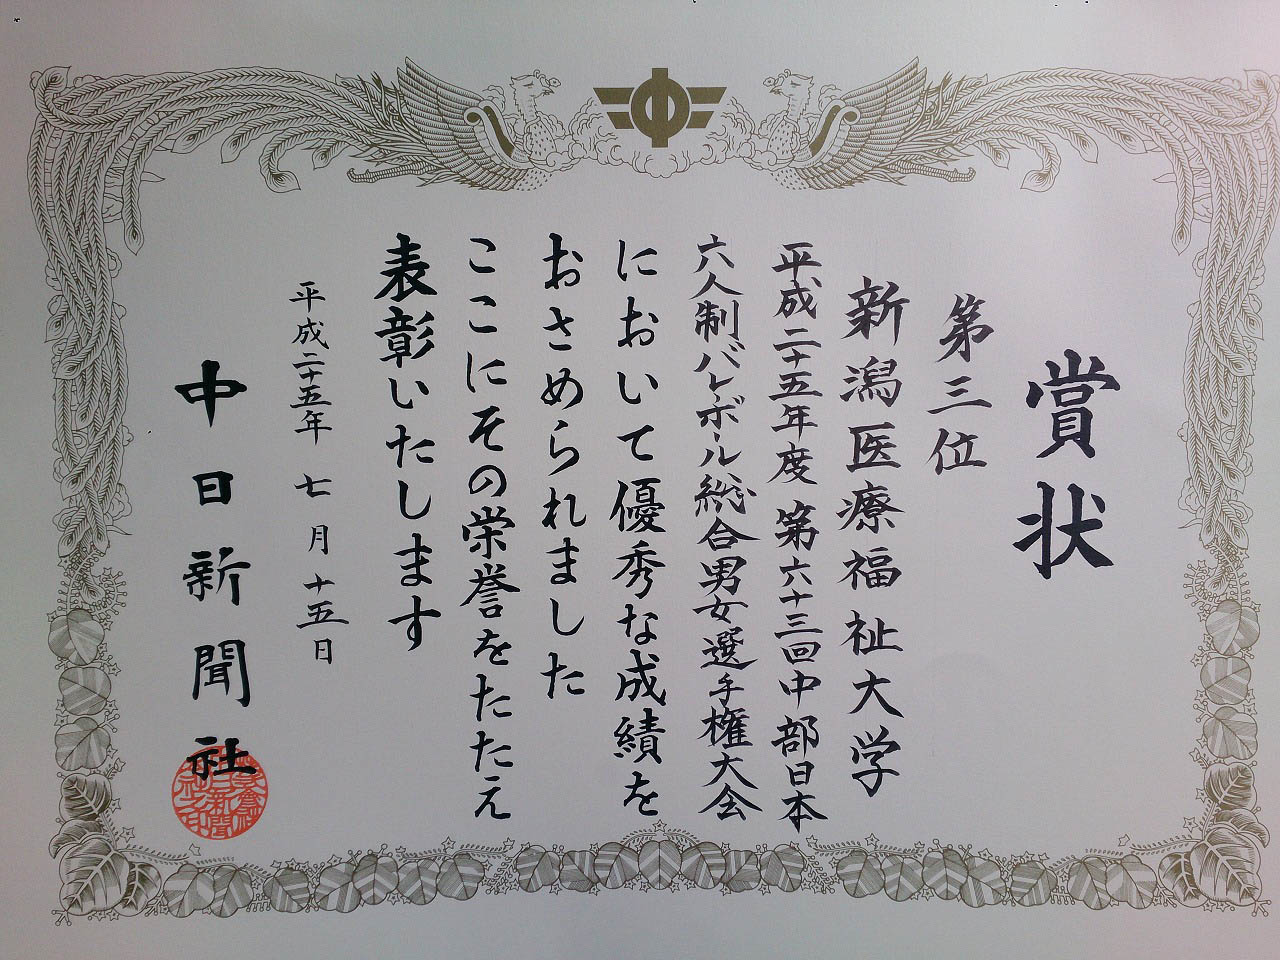 賞状
第三位
新潟医療福祉大学
平成二十五年度 第六十三回中部日本
六人制バレーボール総合男女選手権大会
において優秀な成績を
おさめられました
ここにその栄誉をたたえ
表彰いたします
平成二十五年 七月十五日
中日新聞社